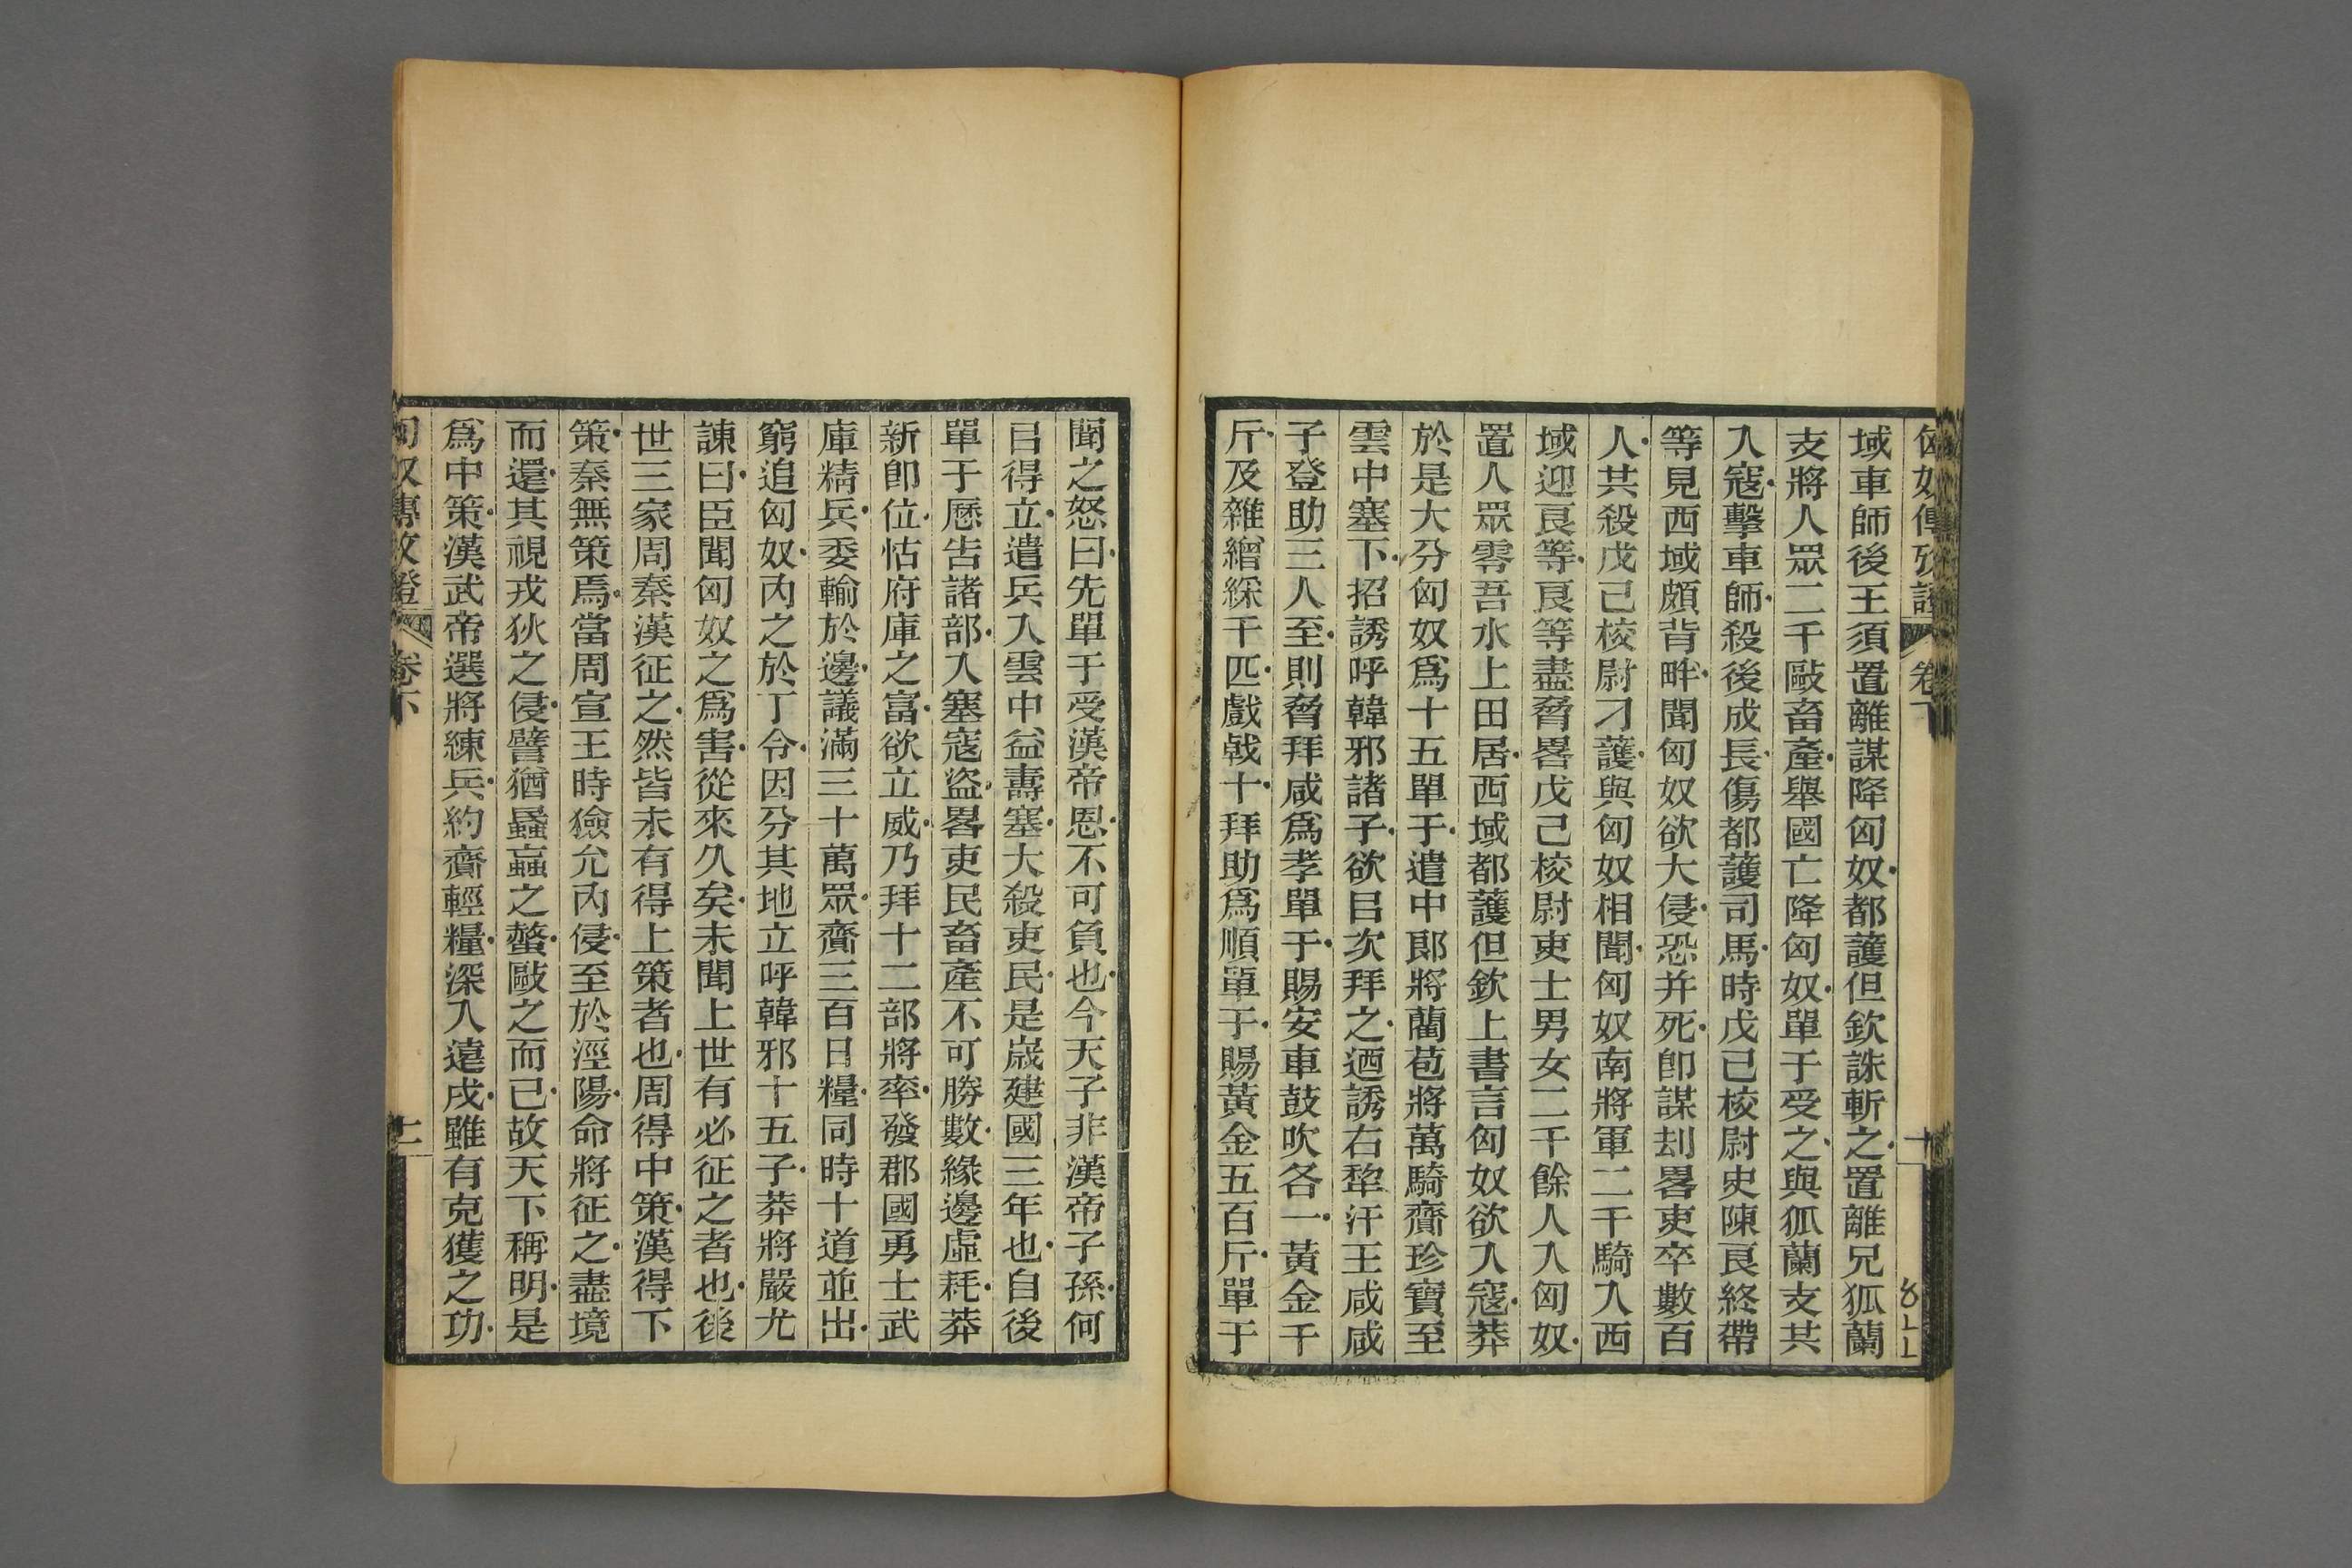 匈奴傳攷證 卷下 十
域車師後王須置離謀降匈奴都護但欽誅斬之置離兄狐蘭
支將人眾二千敺畜產舉國亡降匈奴單于受之與狐蘭支共
入寇擊車師殺後成長傷都護司馬時戊己校尉史陳良終帶
等見西域頗背畔聞匈奴欲大侵恐并死卽謀刦畧吏卒數百
人共殺戊己校尉刁護與匈奴相聞匈奴南將軍二千騎入西
域迎良等良等盡脅畧戊己校尉吏士男女二千餘人入匈奴
置人眾零吾水上田居西域都護但欽上書言匈奴欲入寇莽
於是大分匈奴爲十五單于遣中郎將藺苞將萬騎齎珍寶至
雲中塞下招誘呼韓邪諸子欲㠯次拜之迺誘右犂汗王咸咸
子登助三人至則脅拜咸爲孝單于賜安車鼓吹各一黃金千
斤及雜繒綵千匹戲戟十拜助爲順單于賜黃金五百斤單于
聞之怒曰先單于受漢帝恩不可負也今天子非漢帝子孫何
㠯得立遣兵入雲中益壽塞大殺吏民是歲建國三年也自後
單于歷告諸部入塞寇盜畧吏民畜產不可勝數緣邊虛耗莽
新卽位怙府庫之富欲立威乃拜十二部將率發郡國勇士武
庫精兵委輸於邊議滿三十萬眾齎三百日糧同時十道並出
窮追匈奴內之於丁令因分其地立呼韓邪十五子莽將嚴尤
諫曰臣聞匈奴之爲害從來久矣未聞上世有必征之者也後
世三家周秦漢征之然皆未有得上策者也周得中策漢得下
策秦無策焉當周宣王時獫允內侵至於涇陽命將征之盡境
而還其視戎狄之侵譬猶蟁蝱之螫敺之而已故天下稱明是
爲中策漢武帝選將練兵約齎輕糧深入遠戍雖有克獲之功
匈奴傳攷證 卷下 十一